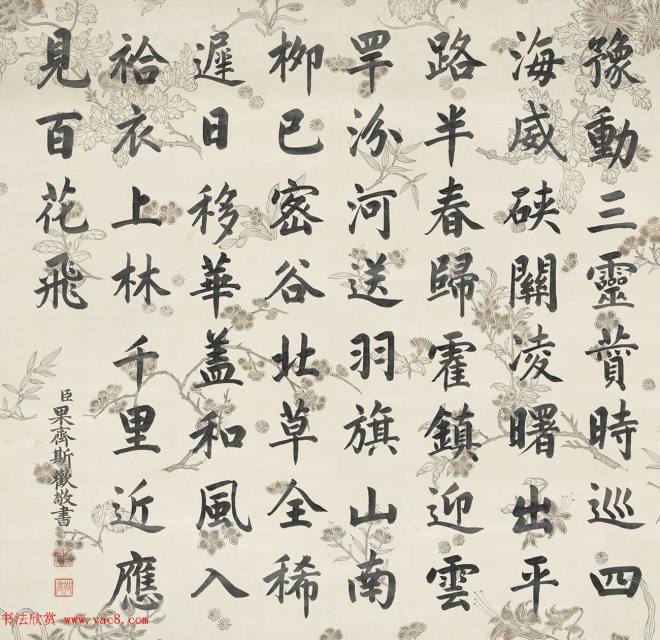 豫動三靈賛時巡四
海威硤關凌曙出平
路半春歸霍鎮迎雲
罕汾河送羽旗山南
柳已密谷北草全稀
遲日移華盖和風入
袷衣上林千里近應
見百花飛
臣果齊斯歡敬書
书法欣赏 www.yac8.com